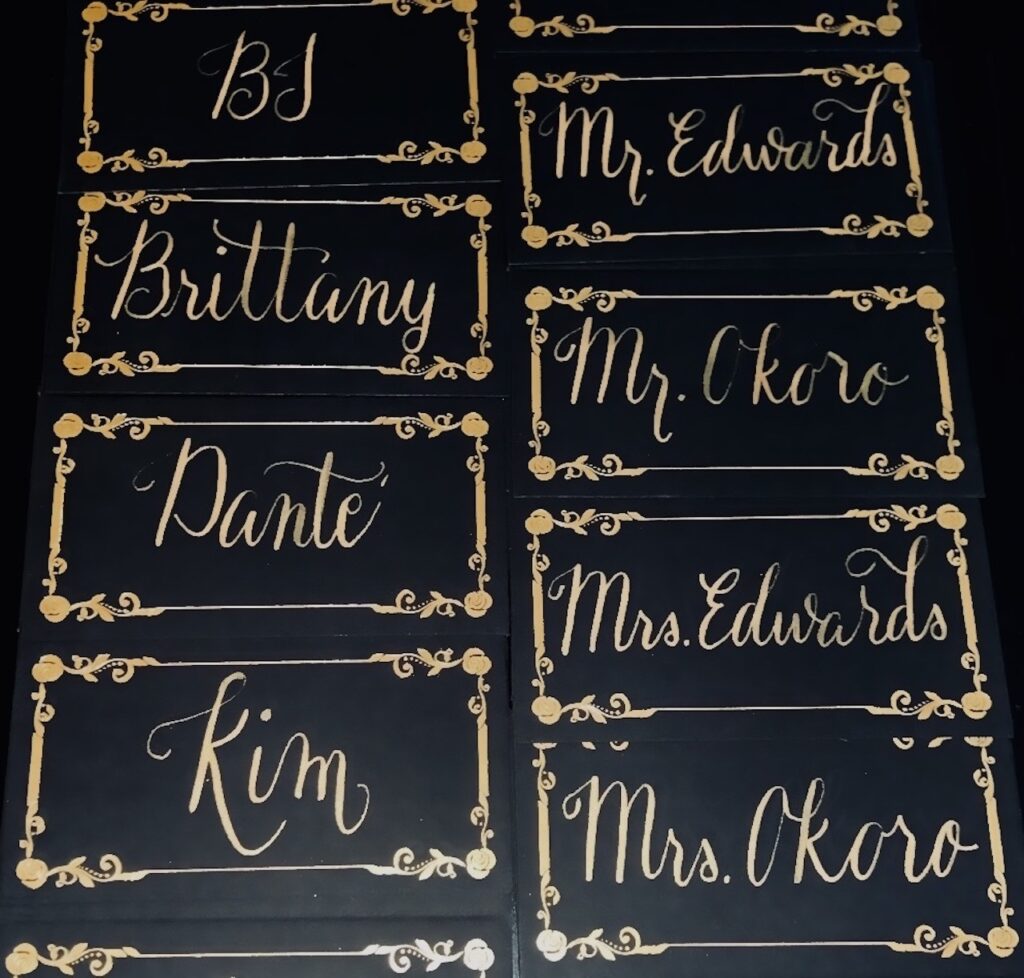 BJ
Brittany
Danté
Kim
Mr. Edwards
Mr. Okoro
Mrs. Edwards
Mrs. Okoro